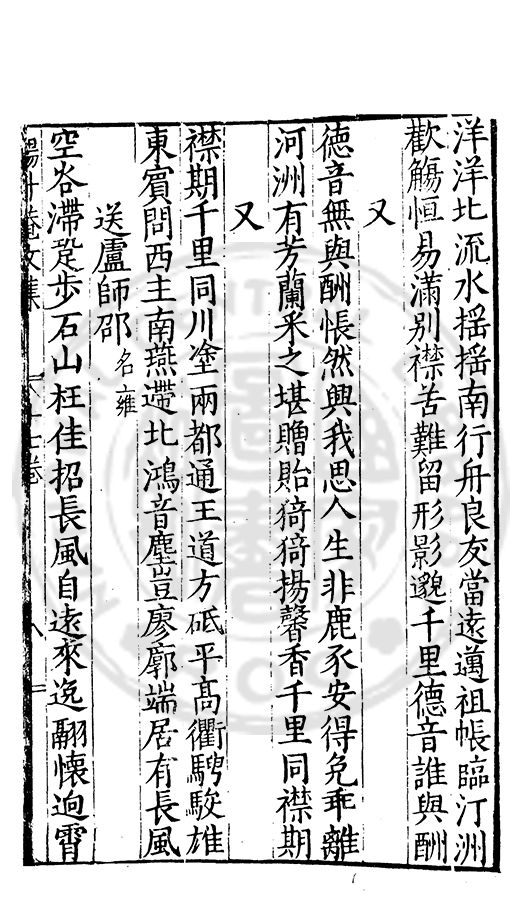 洋洋北流水揺揺南行舟良友當遠邁祖帳臨汀洲
歡觴恒易滿別襟苦難留形影邈千里德音誰與酬
又
德音無與酬悵然興我思人生非鹿豕安得免乖離
河洲有芳蘭采之堪贈貽猗猗揚馨香千里同襟期
又
襟期千里同川塗兩都通王道方砥平高衢騁駿雄
東賓問西主南燕遡北鴻音塵豈廖廓端居有長風
送盧師邵名雍
空谷滯㝎步石山枉佳招長風自遠來逸翮懷迥霄